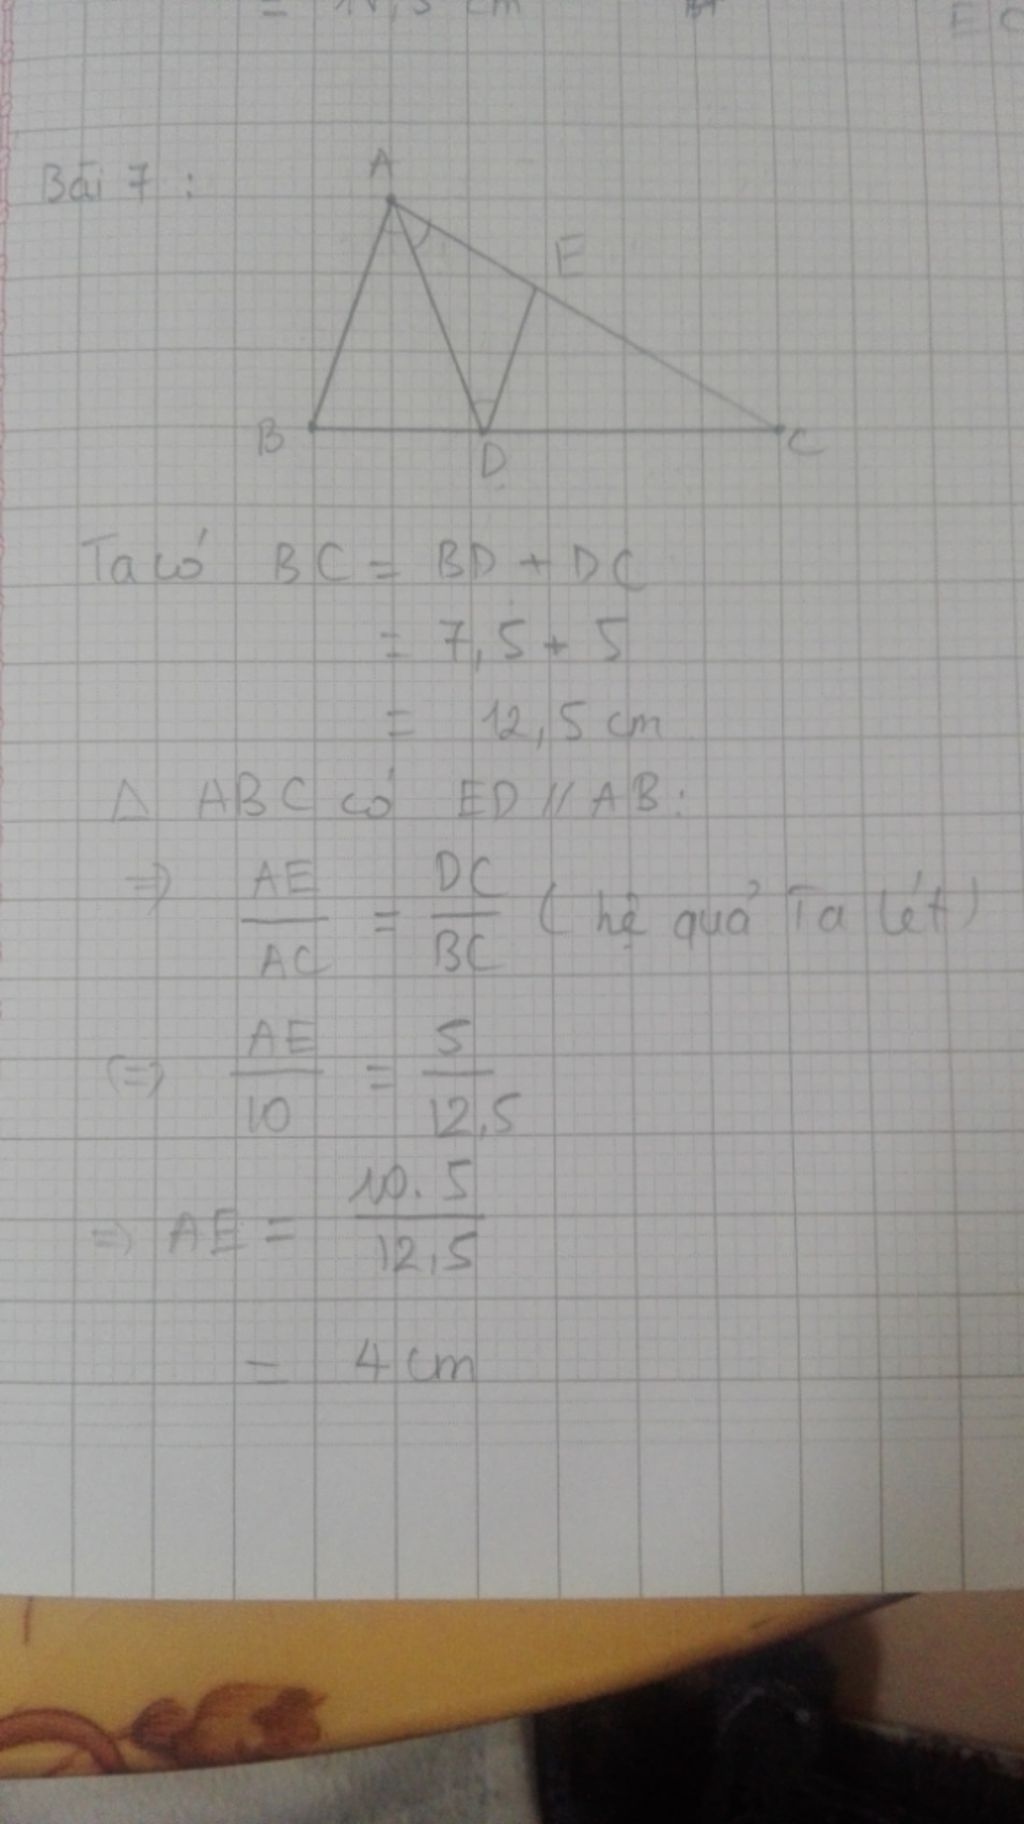 = 1 ,5 cm
E C
Bài 7 :
A
E
B
D
C
Ta có BC = BD + DC
= 7,5 + 5
= 12,5 cm
Δ ABC có ED // AB :
=> AE/AC = DC/BC ( hệ quả Ta lét)
(=) AE/10 = 5/12,5
=> AE = 10.5/12,5
= 4 cm